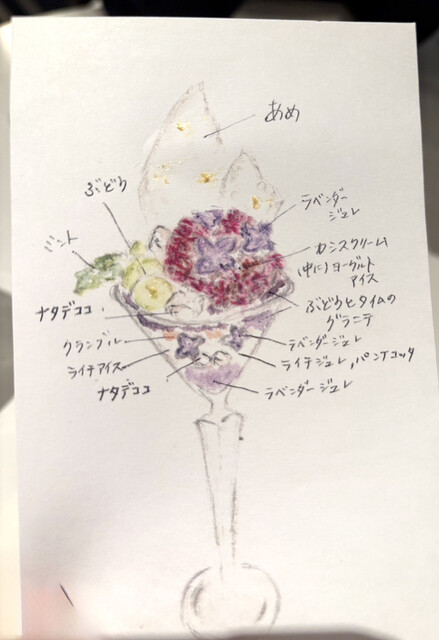 あめ
ぶどう
ラベンダー
ジュレ
ミント
カシスクリーム
(中に)ヨーグルト
アイス
ナタデココ
ぶどうとタイムの
グラニテ
クランブル
ラベンダージュレ
ライチアイス
ライチジュレ,パンナコッタ
ナタデココ
ラベンダージュレ